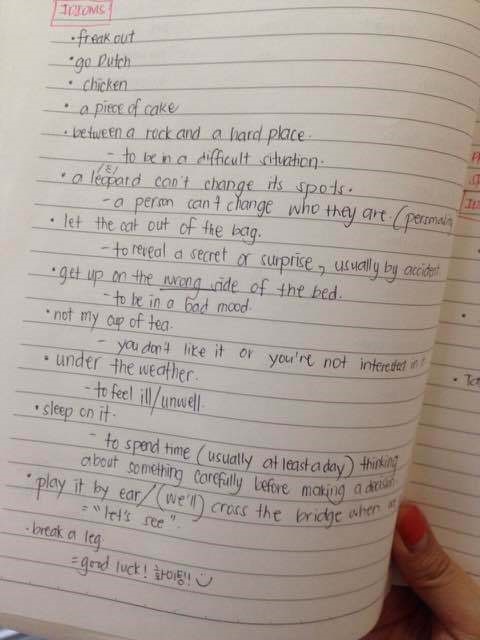 IDIOMS
• freak out
• go Dutch
• chicken
• a piece of cake
• between a rock and a hard place.
- to be in a difficult situation.
/e/
• a leopard can't change its spots.
- a person can't change who they are. (personali
• let the cat out of the bag.
- to reveal a secret or surprise, usually by accident
• get up on the wrong side of the bed.
- to be in a bad mood.
• not my cup of tea.
- you don't like it or you're not interested in it
• under the weather.
- to feel ill/unwell.
• sleep on it.
- to spend time (usually at least a day) thinking
about something carefully before making a decision
• play it by ear/(we'll) cross the bridge when we
= "let's see".
• break a leg
= good luck! 화이팅!! :)